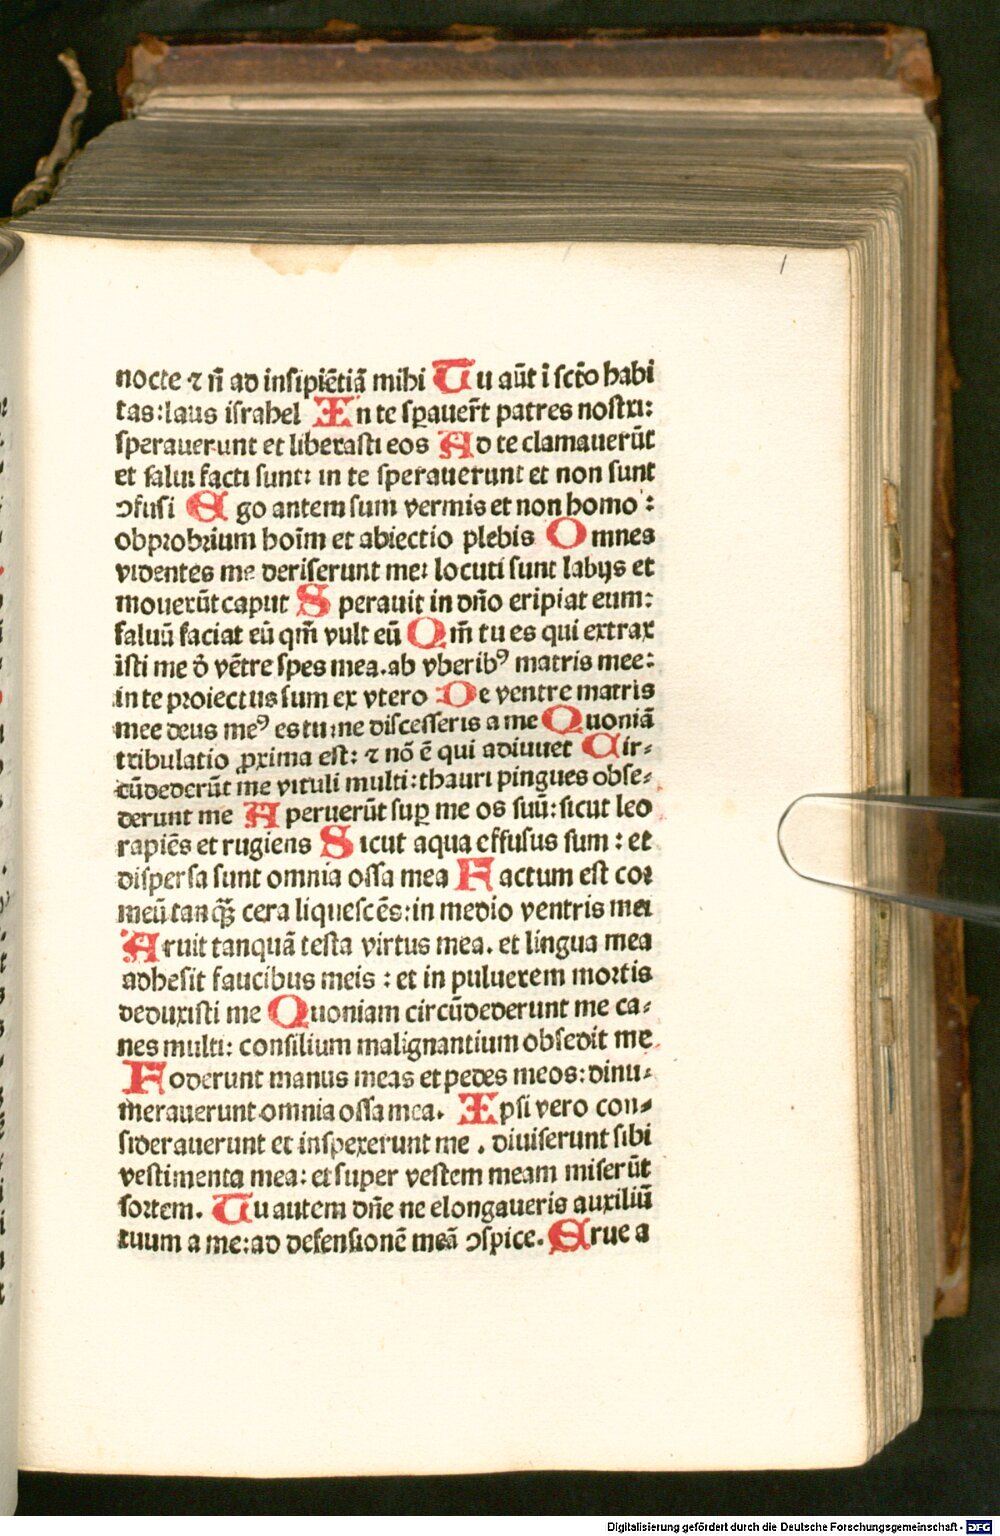 nocte ⁊ nō ad insipiētiā mihi Tu aūt i scto habi
tas: laus israhel In te sꝑauer̄t patres nostri:
sperauerunt et liberasti eos Ad te clamauerūt
et salui facti sunt: in te sperauerunt et non sunt
ↄfusi Ego autem sum vermis et non homo:
obprobrium hoīm et abiectio plebis Omnes
videntes me deriserunt me: locuti sunt labijs et
mouerūt caput Sperauit in dño eripiat eum:
saluū faciat eū qm̄ vult eū Qm̄ tu es qui extrax
isti me ō vētre spes mea. ab vberibꝰ matris mee:
in te proiectus sum ex vtero De ventre matris
mee deus meꝰ es tu: ne discesseris a me Quoniā
tribulatio ꝓxima est: ⁊ nō ē qui adiuuet Cir-
cūdederūt me vituli multi: thauri pingues obse-
derunt me Aperuerūt suꝑ me os suū: sicut leo
rapiēs et rugiens Sicut aqua effusus sum: et
dispersa sunt omnia ossa mea Factum est cor
meū tanq̄ꝫ cera liquescēs: in medio ventris mei
Aruit tanquā testa virtus mea. et lingua mea
adhesit faucibus meis: et in puluerem mortis
deduxisti me Quoniam circūdederunt me ca-
nes multi: consilium malignantium obsedit me
Foderunt manus meas et pedes meos: dinu-
merauerunt omnia ossa mea. Ipsi vero con-
siderauerunt et inspexerunt me. diuiserunt sibi
vestimenta mea: et super vestem meam miserūt
sortem. Tu autem dñe ne elongaueris auxiliū
tuum a me: ad defensionē meā ↄspice. Erue a
Digitalisierung gefördert durch die Deutsche Forschungsgemeinschaft - DFG